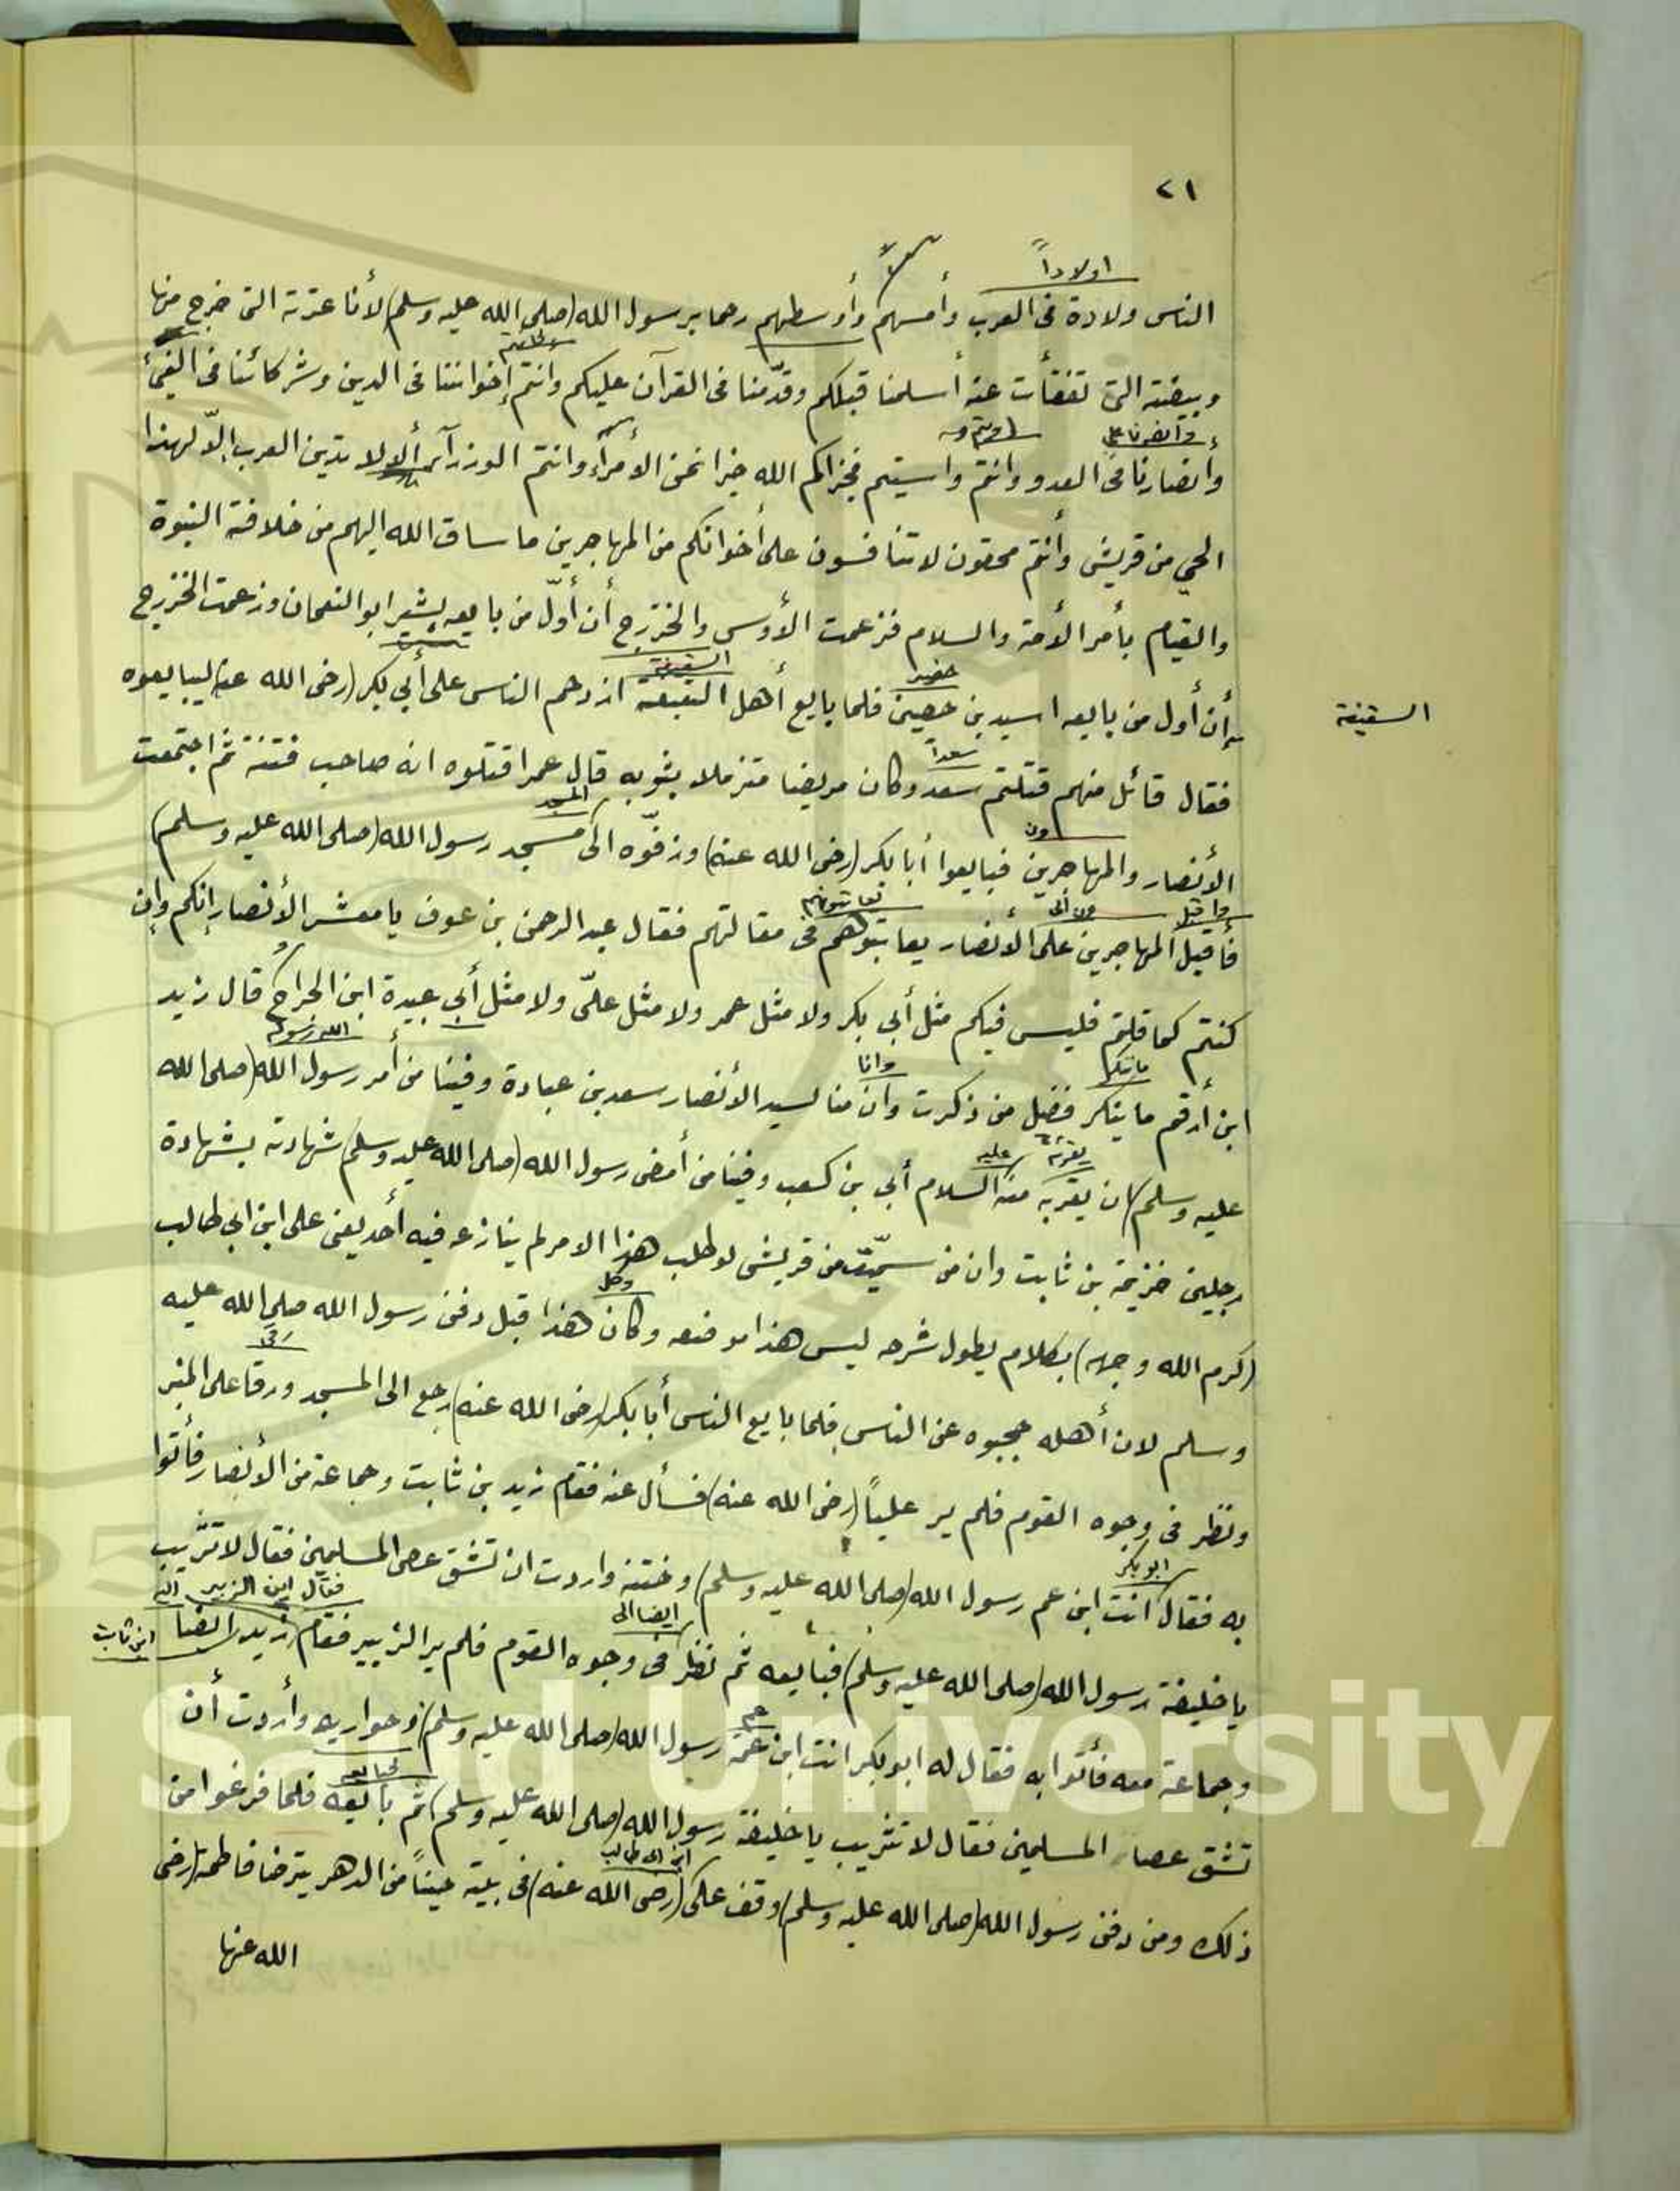 ٢١
اولاداً
الناس ولادة فى العرب وأمسهم وأوسطهم رحما برسول الله (صلى الله عليه وسلم) لأنا عترته التى خرج منها
وبيضته التى تفقأت عنه أسلمنا قبلكم وقدّمنا فى القرآن عليكم وانتم إخواننا فى الدين وشركائنا فى الفئ
وأنصارنا فى العدو وانتم واسيتم فجزاكم الله خيرا نحن الأمرآء وانتم الوزرآء لا تدين العرب إلاّ لهذا
الحي من قريش وأنتم محقون لا تنافسون على أخوانكم من المهاجرين ما ساق الله اليهم من خلافة النبوة
والقيام بأمر الأمة والسلام فزعمت الأوس والخزرج أن أوّل من بايعه بشير ابو النعمان وزعمت الخزرج
حضير السقيفة
أن أول من بايعه اسيد بن حصين فلما بايع أهل البقيعة ازدحم الناس على أبي بكر (رضى الله عنه) ليبايعوه
السقيفة
سعداً
فقال قائل منهم قتلتم سعد وكان مريضا متزملا بثوبه قال عمر اقتلوه انه صاحب فتنة ثم اجتمعت
ون المسجد
الأنصار والمهاجرين فبايعوا أبا بكر (رضى الله عنه) وزفّوه الى مسجد رسول الله (صلى الله عليه وسلم)
واقبل ون الى
فأقبل المهاجرين على الأنصار يعاتبوهم فى مقالتهم فقال عبد الرحمن بن عوف يا معشر الأنصار إنكم وإن
كنتم كما قلتم فليس فيكم مثل أبي بكر ولا مثل عمر ولا مثل علىّ ولا مثل أبي عبيدة ابن الجراح قال زيد
ما ننكر وانا الله ورسوله
ابن أرقم ما ينكر فضل من ذكرت وان منا لسيد الأنصار سعد بن عبادة وفينا من أمر رسول الله (صلى الله
عليه
عليه وسلم) ان يقربه منه السلام أبي بن كعب وفينا من أمضى رسول الله (صلى الله عليه وسلم) شهادته بشهادة
رجلين خزيمة بن ثابت وان من سمّيت من قريش لو طلب هذا الامر لم ينازعه فيه أحد يعنى على ابن ابى طالب
وكل
(كرم الله وجهه) بكلام يطول شرحه ليس هذا موضعه وكان هذا قبل دفن رسول الله صلى الله عليه
رقى
وسلم لان أهله حجبوه عن الناس فلما بايع الناس أبا بكر (رضى الله عنه) رجع الى المسجد ورقا على المنبر
ونظر فى وجوه القوم فلم ير علياً (رضى الله عنه) فسأل عنه فقام زيد بن ثابت وجماعة من الأنصار فأتوا
ابو بكر
به فقال انت ابن عم رسول الله (صلى الله عليه وسلم) وختنه واردت ان تشق عصى المسلمين فقال لا تثريب
ايضا الى فقال اين الزبير
يا خليفة رسول الله (صلى الله عليه وسلم) فبايعه ثم نظر فى وجوه القوم فلم ير الزبير فقام زيد ايضا ابن ثابت
عم
وجماعة معه فأتوا به فقال له ابو بكر انت ابن عمة رسول الله (صلى الله عليه وسلم) وحواريه وأردت أن
فبايعه
تشق عصا المسلمين فقال لا تثريب يا خليفة رسول الله (صلى الله عليه وسلم) ثم بايعه فلما فرغوا من
ابن ابى طالب
ذلك ومن دفن رسول الله (صلى الله عليه وسلم) وقف على (رضى الله عنه) فى بيته حيناً من الدهر يترضا فاطمة (رضى
الله عنها
g Saud University